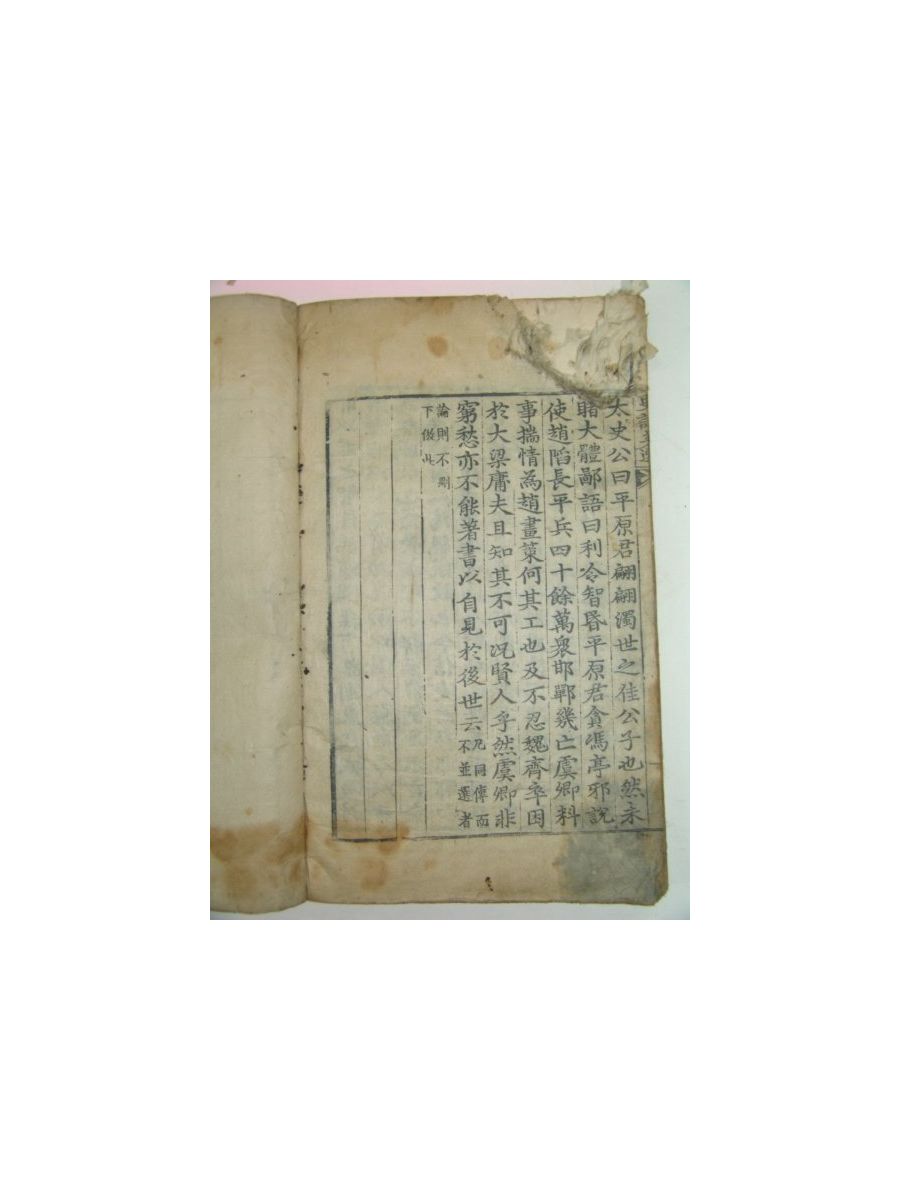 太史公曰平原君翩翩濁世之佳公子也然未
睹大體鄙語曰利令智昏平原君貪馮亭邪說
使趙陷長平兵四十餘萬衆邯鄲幾亡虞卿料
事揣情為趙畫策何其工也及不忍魏齊卒困
於大梁庸夫且知其不可况賢人乎然虞卿非
窮愁亦不能著書以自見於後世云 凡同傳而
不並選者
論則不剛
下倣此